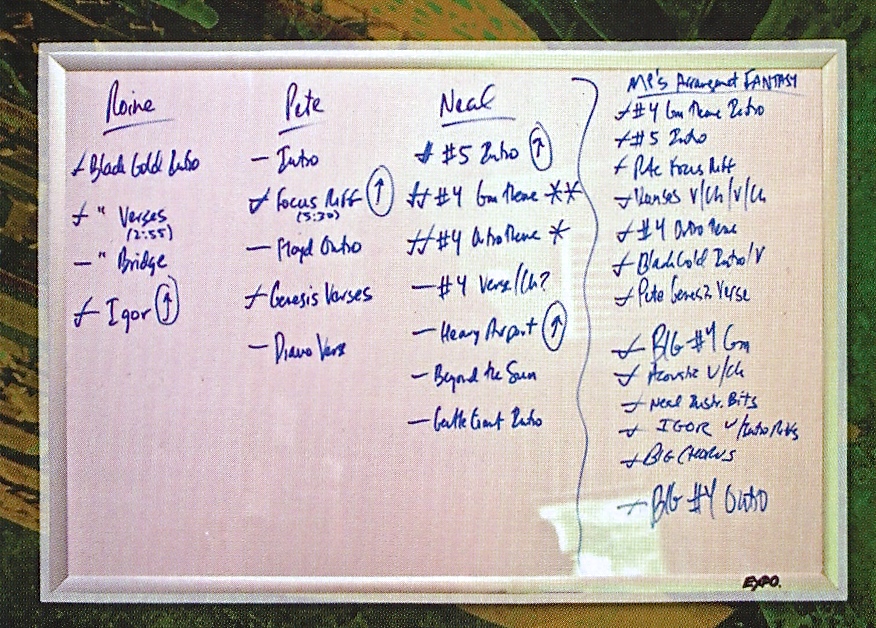 Roine
✓ Black Gold Intro
✓ " Verses
(2:55)
— " Bridge
✓ Igor ↑
Pete
— Intro
✓ Focus Riff ↑
(5:30)
— Floyd Outro
✓ Genesis Verses
— Piano Verse
Neal
✓ #5 Intro ↑
✓✓ #4 Gm Theme **
✓✓ #4 Outro Theme *
— #4 Verse/Ch?
— Heavy ↑
— Beyond the Sun
— Gentle Giant Intro
MP's Arrangement FANTASY
✓ #4 Gm Theme Intro
✓ #5 Intro
✓ Pete Focus Riff
✓ Verses V/Ch/V/Ch
✓ #4 Outro Theme
✓ Black Gold Intro/V
✓ Pete Genesis Verse
✓ BIG #4 Gm
✓ Acoustic V/Ch
✓ Neal Instr. Bits
✓ IGOR w/Intro Riffs
✓ BIG CHORUS
— BIG #4 Outro
EXPO.